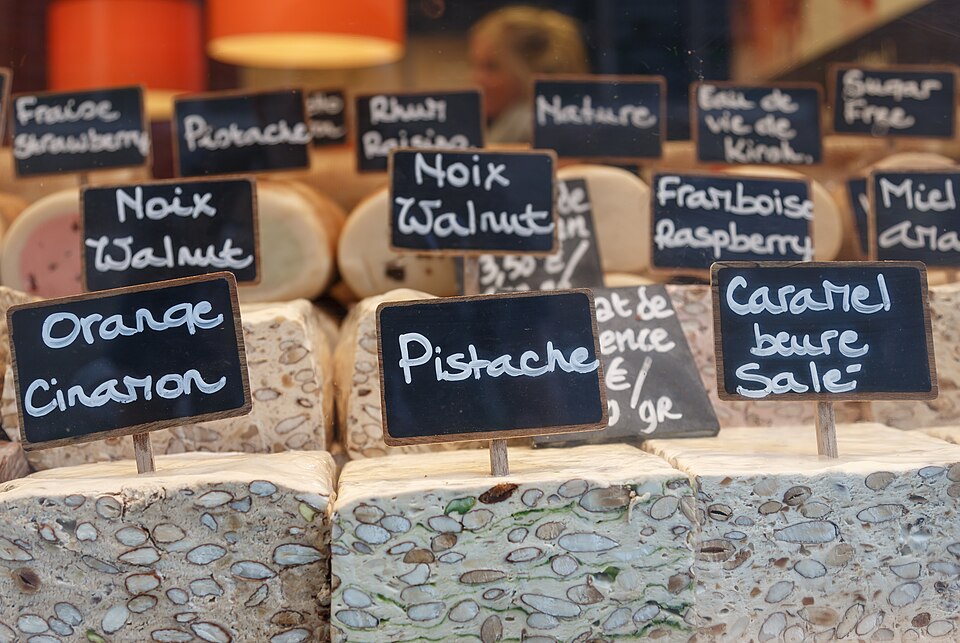 Fraise
Strawberry
Pistache
Rhum
Raisins
Nature
Eau de
vie de
Kirsh,
Sugar
Free
Noix
Walnut
Noix
Walnut
de
3,50 €/
Framboise
Raspberry
Miel
Orange
Cinamon
Pistache
at de
ence
€/
gR
Caramel
beure
Salé